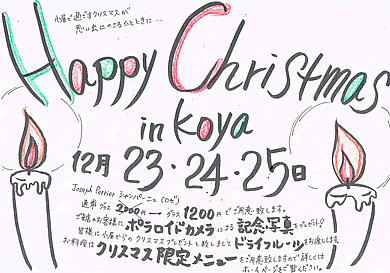 小屋で過ごすクリスマスが
思い出にのこるひとときに...
Happy Christmas
in koya
12月 23・24・25日
Joseph Perrier シャンパーニュ(ロゼ)
通常グラス 2000円 → グラス 1200円 でご用意致します。
ご来店のお客様に ポラロイドカメラ による 記念写真 をプレゼント!
皆様に小屋からのクリスマスプレゼントと致しまして ドライフルーツ をお渡しします。
お料理は クリスマス限定メニュー をご用意致しますので詳しくは
ホームページをご覧ください。